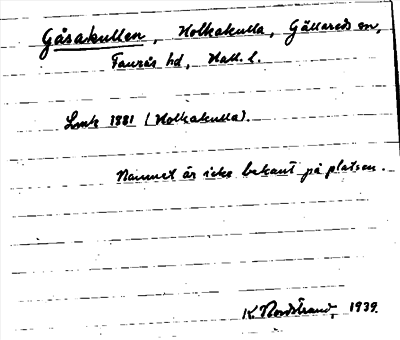 Gåsakullen, Holkakulla, Gällareds sn,
Faurås hd, Hall. l.
Lmk 1881 (Holkakulla).
Namnet är icke bekant på platsen.
K Nordstrand, 1939.